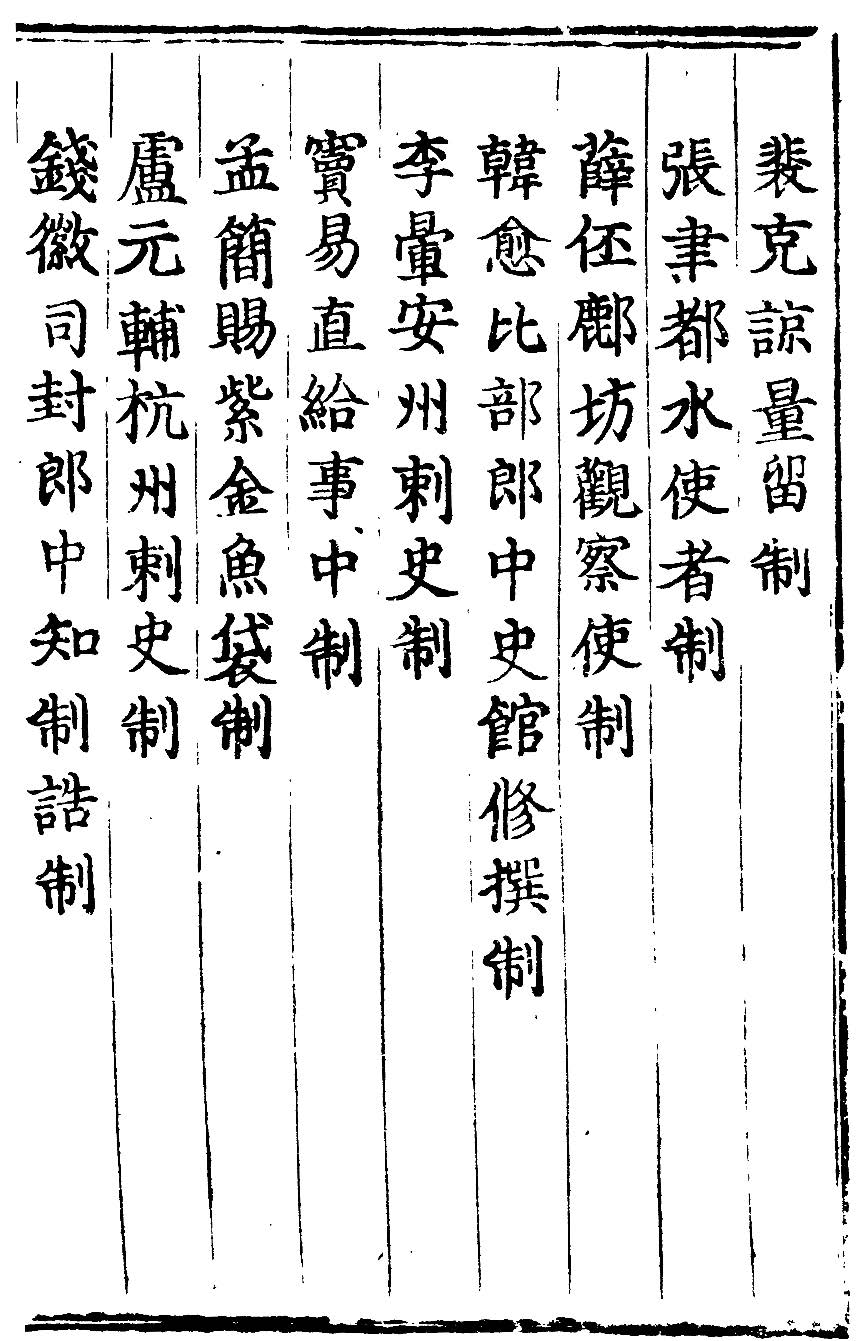 裴克諒量留制
張聿都水使者制
薛伾鄜坊觀察使制
韓愈比部郎中史館修撰制
李暈安州刺史制
竇易直給事中制
孟簡賜紫金魚袋制
盧元輔杭州刺史制
錢徽司封郎中知制誥制